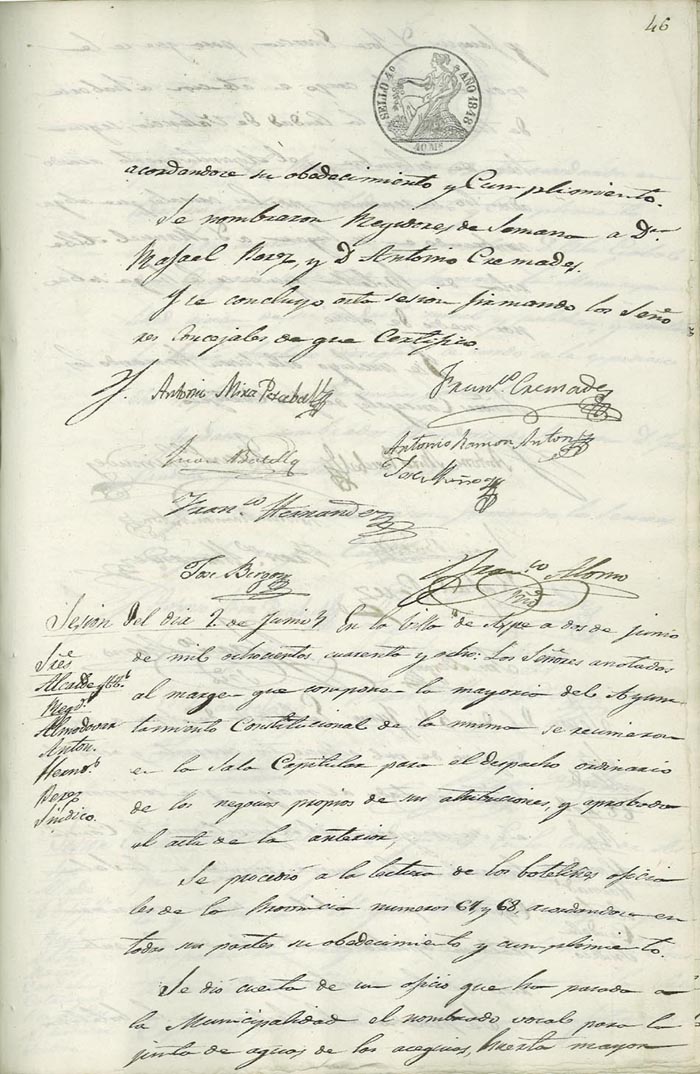 46
SELLO 4º AÑO 1848
40 Ms
acordandose su obedecimiento y Cumplimiento.
Se nombraron Regidores de Semana a Dn
Rafael Perez, y D Antonio Cremades.
Y se concluyo esta sesion firmando los Seño
res Concejales de que Certifico.
Antonio Mira Perceball
Franco Cremades
Antonio Ramon Anton
Juan Botella
Jose
Franco Hernandez
Jose Berges
Franco Alonso
Sesion del dia 2 de Junio En la Villa de Aspe a dos de junio
de mil ochocientos cuarenta y ocho: Los Señores anotados
al margen que componen la mayoria del Ayun
tamiento Constitucional de la misma se reunieron
en la Sala Capitular para el despacho ordinario
de los negocios propios de sus atribuciones, y aprobado
el acta de la anterior,
Sres
Alcalde
Regs
Almodovar
Anton.
Hernz
Perez
Sindico.
Se procedió a la lectura de los boletines oficia
les de la Provincia numeros 67 y 68, acordandose en
todas sus partes su obedecimiento y cumplimiento.
Se dió cuenta de un oficio que ha pasado a
la Municipalidad el nombrado vocal para la
junta de aguas de los acequias, huerta mayor